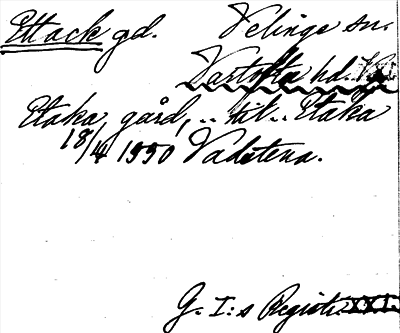 Ettack gd. Velinge sn.
Vartofta hd.
Etaka gård, .. till .. Etaka
18/4 1550 Vadstena.
G. I:s Registr. XXI.